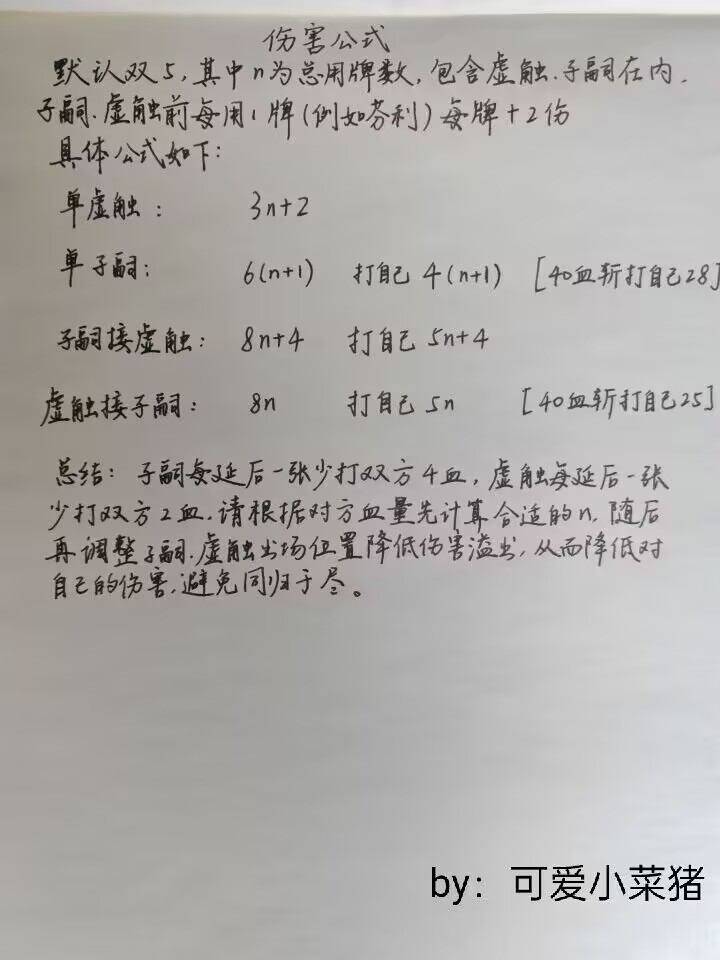 伤害公式
默认双5,其中n为总用牌数,包含虚触、子嗣在内.
子嗣、虚触前每用1牌(例如芬利)每牌+2伤
具体公式如下:
单虚触: 3n+2
单子嗣: 6(n+1) 打自己 4(n+1) [40血斩打自己28]
子嗣接虚触: 8n+4 打自己 5n+4
虚触接子嗣: 8n 打自己 5n [40血斩打自己25]
总结: 子嗣每延后一张少打双方4血,虚触每延后一张
少打双方2血.请根据对方血量先计算合适的n,随后
再调整子嗣、虚触出场位置降低伤害溢出,从而降低对
自己的伤害,避免同归于尽。
by:可爱小菜猪